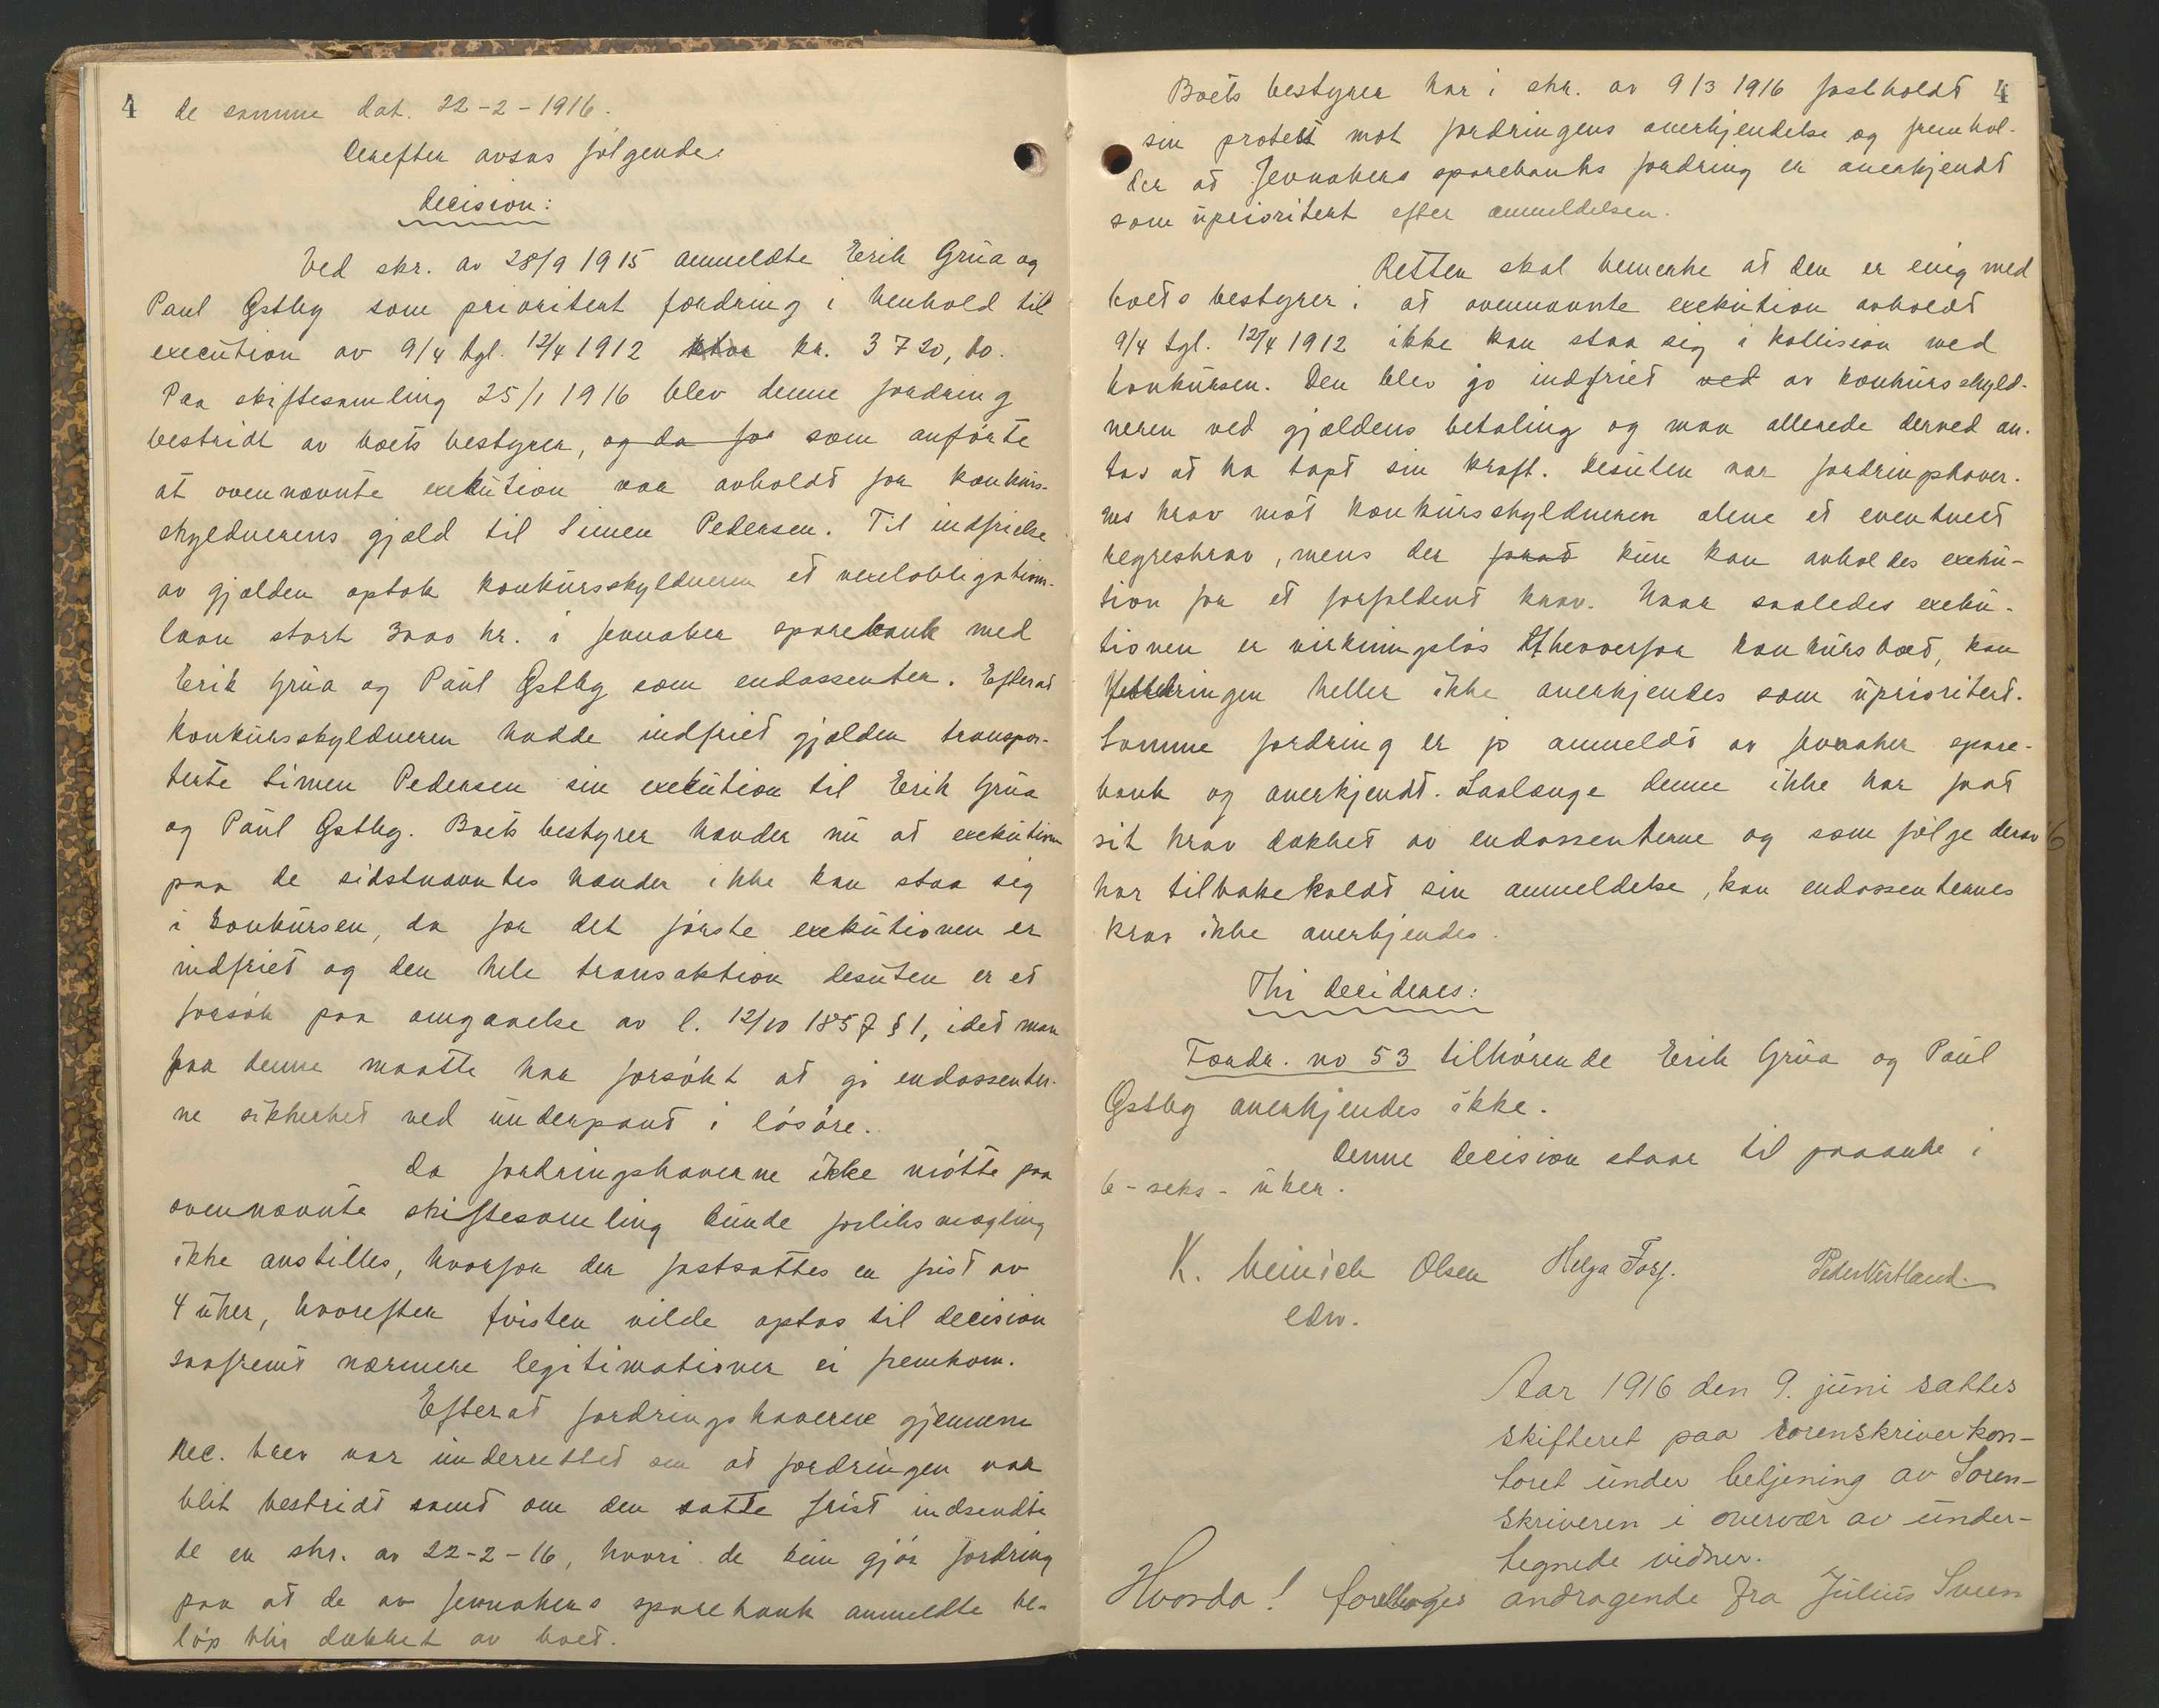 4
de samme dat. 22-2-1916.
Derefter avsas følgende
decision:
Ved skr. av 28/9 1915 anmeldte Erik Grua og
Paul Gstby som prioritert fordring i henhold til
execution av 9/4 tgl. 12/4 1912 kr. 3720,60.
Paa skiftesamling 25/1 1916 blev denne fordring
bestridt av boets bestyrer, og da for som anførte
at ovennævnte exekution var avholdt for konkurs-
skyldnerens gjæld til Simen Pedersen. Til indfrielse
av gjælden optok konkursskyldneren et vexelobligations-
laan stort 3000 kr. i Jevnaker sparebank med
Erik Grua og Paul Gstby som endossenter. Efterat
konkursskyldneren hadde indfriet gjælden transpor-
terte Simen Pedersen sin exekution til Erik Grua
og Paul Gstby. Boets bestyrer hævder nu at exekution
paa de sidstnævntes hænder ikke kan staa sig
i konkursen, da for det første exekutionen er
indfriet og den hele transaktion desuten er et
forsøk paa omgaaelse av l. 12/10 1857 § 1, idet man
paa denne maatte har forsøkt at gi endossenter-
ne sikkerhet ved underpant i løsøre.
Da fordringshaverne ikke møtte paa
ovennævnte skiftesamling kunde forliksmægling
ikke anstilles, hvorfor der fastsattes en frist av
4 uker, hvorefter tvisten vilde optas til decision
saafremt nærmere legitimationer ei fremkom.
Efterat fordringshaverne gjennem
rec. brev var underrettet om at fordringen var
blit bestridt samt om den satte frist indsendte
de en skr. av 22-2-16, hvori de kun gjør fordring
paa at de av Jevnakers sparebank anmeldte be-
løp blir dækket av boet.
4
Boets bestyrer har i skr. av 9/3 1916 fastholdt
sin protest mot fordringens anerkjendelse og fremhol-
der at Jevnakers sparebanks fordring er anerkjendt
som uprioritert efter anmeldelsen.
Retten skal bemerke at den er enig med
boets bestyrer i at ovennævnte exekution avholdt
9/4 tgl. 12/4 1912 ikke kan staa sig i kollision med
konkursen. Den blev jo indfriet ved av konkursskyld-
neren ved gjældens betaling og maa allerede derved an-
tas at ha tapt sin kraft. Desuten var fordringshaver-
nes krav mot konkursskyldneren alene et eventuelt
regreskrav, mens der kun kan avholdes exeku-
tion for et forfaldent krav. Naar saaledes exeku-
tionen er virkningsløs likeoverfor konkursboet, kan
fordringen heller ikke anerkjendes som uprioritert.
Samme fordring er jo anmeldt av Jevnaker spare-
bank og anerkjendt. Saalænge denne ikke har faat
sit krav dækket av endossenterne og som følge derav
har tilbakekaldt sin anmeldelse, kan endossenternes
krav ikke anerkjendes.
Thi decideres:
Fordr. no 53 tilhørende Erik Grua og Paul
Gstby anerkjendes ikke.
Denne decision staar til paaanke i
6 - seks - uker.
K. Heinrich Olsen Helga Foss. Peder Vestland.
edw.
Aar 1916 den 9. juni sattes
skifteret paa sorenskriverkon-
toret under betjening av Soren-
skriveren i overvær av under-
tegnede vidner.
Hvorda! foretages andragende fra Julius Sveen